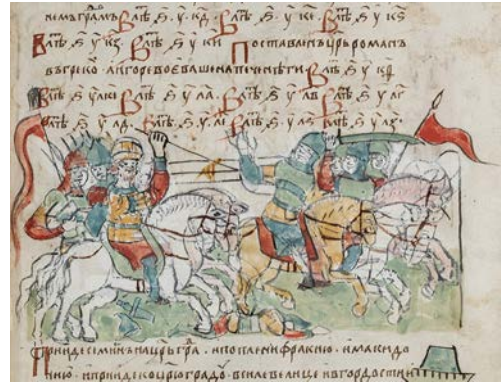 В лѣⷮ ҂ѕ҃ у҃ кд҃. В лѣⷮ ҂ѕ҃ у҃ кє҃. В лѣⷮ ҂ѕ҃ у҃ кѕ҃
В лѣⷮ ҂ѕ҃ у҃ кз҃. В лѣⷮ ҂ѕ҃ у҃ ки҃ Поставленъ црь романъ
въ греко. а игоре воеваше на печенѣги. В лѣⷮ ҂ѕ҃ у҃ кѳ҃
В лѣⷮ ҂ѕ҃ у҃ В лѣⷮ ҂ѕ҃ у҃ ла҃. В лѣⷮ ҂ѕ҃ у҃ лв҃ В лѣⷮ ҂ѕ҃ у҃ лг҃
В лѣⷮ ҂ѕ҃ у҃ лд҃. В лѣⷮ ҂ѕ҃ у҃ ле҃ В лѣⷮ ҂ѕ҃ у҃ лѕ҃ В лѣⷮ ҂ѕ҃ у҃ лз҃
Прииде симинъ на црьгра. и поплени фракию. и макидо
нию. и приде ко црюградꙋ. в силе велице и в гордости